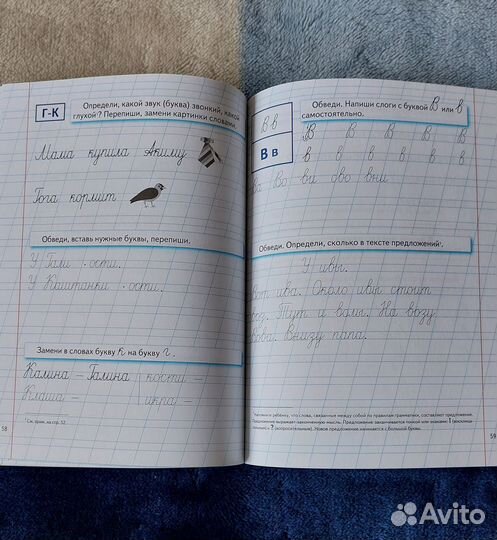 Г-К
Определи, какой звук (буква) звонкий, какой
глухой? Перепиши, замени картинки словами.
Мама купила Акиму
Гога кормит
Обведи, вставь нужные буквы, перепиши.
У Гали · ости.
У Каштанки · ости.
Замени в словах букву к на букву г.
Калина – Галина кости –
Клаша – икра –
¹ См. прим. на стр. 52.
58
В в
В в
Обведи. Напиши слоги с буквой В или в
самостоятельно.
В В В В В
в в в в в в в
ва во ви ово вни
Обведи. Определи, сколько в тексте предложений¹.
У ивы.
Вот ива. Около ивы стоит
воз. Тут и волы. На возу
Вова. Внизу папа.
¹ Напомните ребёнку, что слова, связанные между собой по правилам грамматики, составляют предложение.
Предложение выражает законченную мысль. Предложение заканчивается точкой или знаками: ! (восклица-
тельным) и ? (вопросительным). Новое предложение начинается с большой буквы.
59
Avito